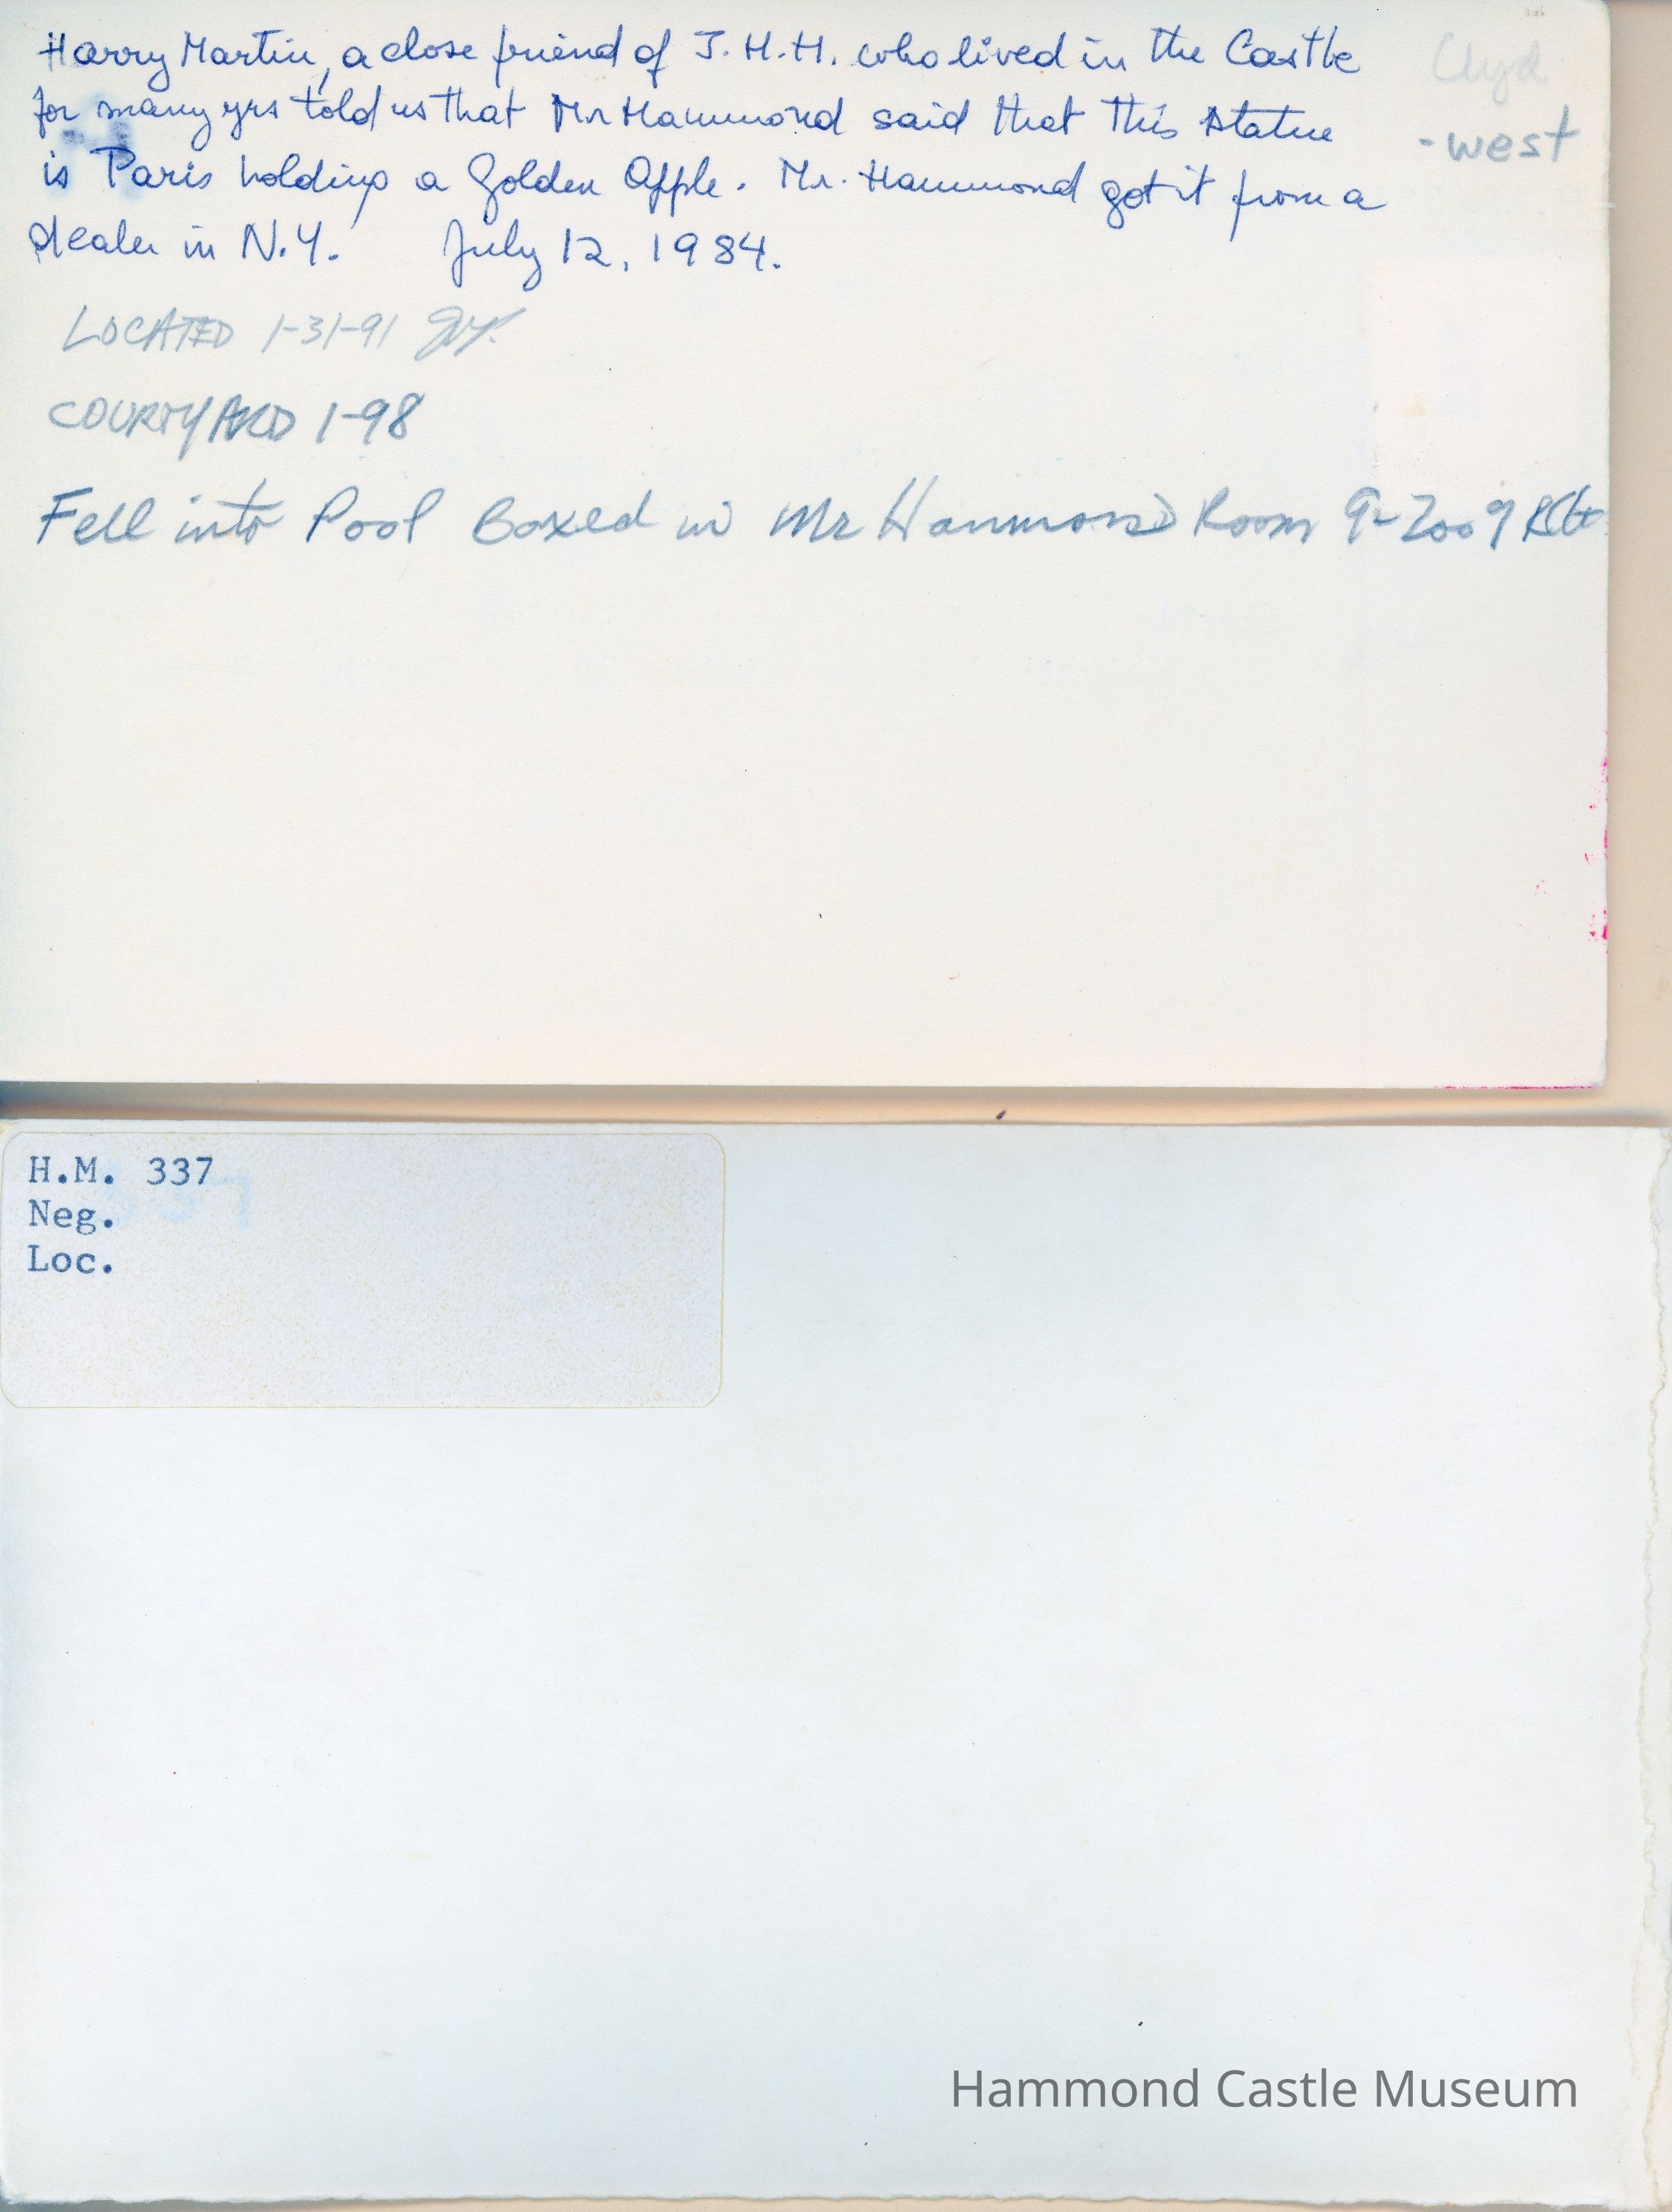 Harry Martin, a close friend of J.H.H. who lived in the Castle
for many yrs told us that Mr Hammond said that this statue
- west
is Paris holding a Golden Apple. Mr. Hammond got it from a
dealer in N.Y. July 12, 1984.
LOCATED 1-31-91
COURTYARD 1-98
Fell into Pool Boxed in Mr Hammond Room 9-2009
H.M. 337
Neg.
Loc.
Hammond Castle Museum